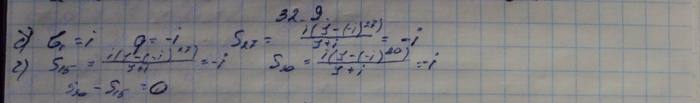 32.9.
б) b₁ = i q = -i S₂₇ = i(1-(-i)²⁷)/1+i = -i
г) S₁₅ = i(1-(-i)²⁷)/1+i = -i S₃₀ = i(1-(-i)²⁰)/1+i = -i
S₃₀ - S₁₅ = 0